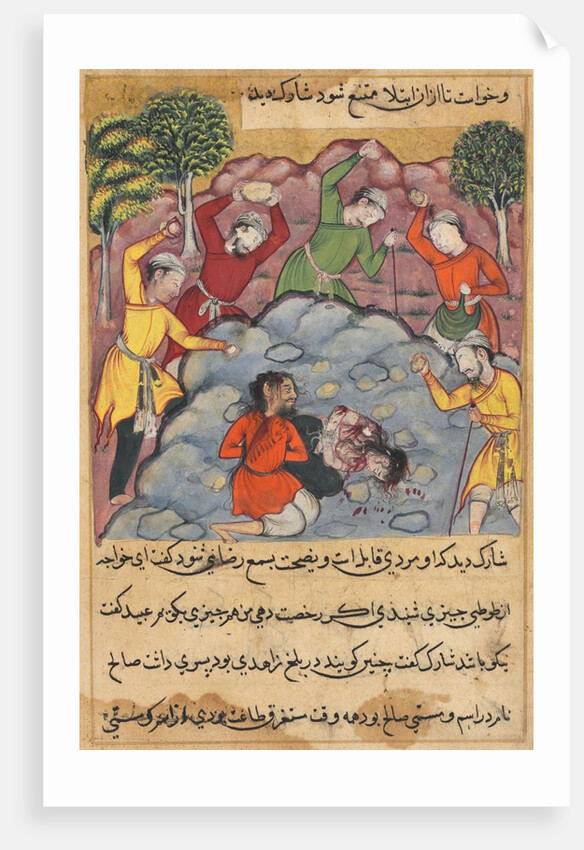 و خواست تا از ان ابتلا ممتنع شود شارک بدید
شارک دید که او مردی قابل است و نصیحت بسمع رضا می شنود گفت ای خواجه
از طوطی چیزی شنیدی اکر رخصت دهی من هم چیزی بکویم عبید گفت
نیکو باشد شارک گفت چنین کویند در بلخ زاهدی بود پسری داشت صالح
نام در اسم و مسمی صالح بود همه وقت مستغرق طاعت بودی از